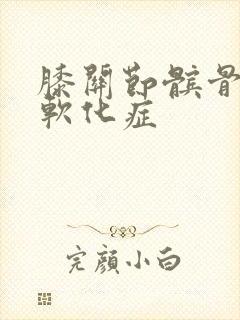 膝關節髌骨
軟化症
完顔小白